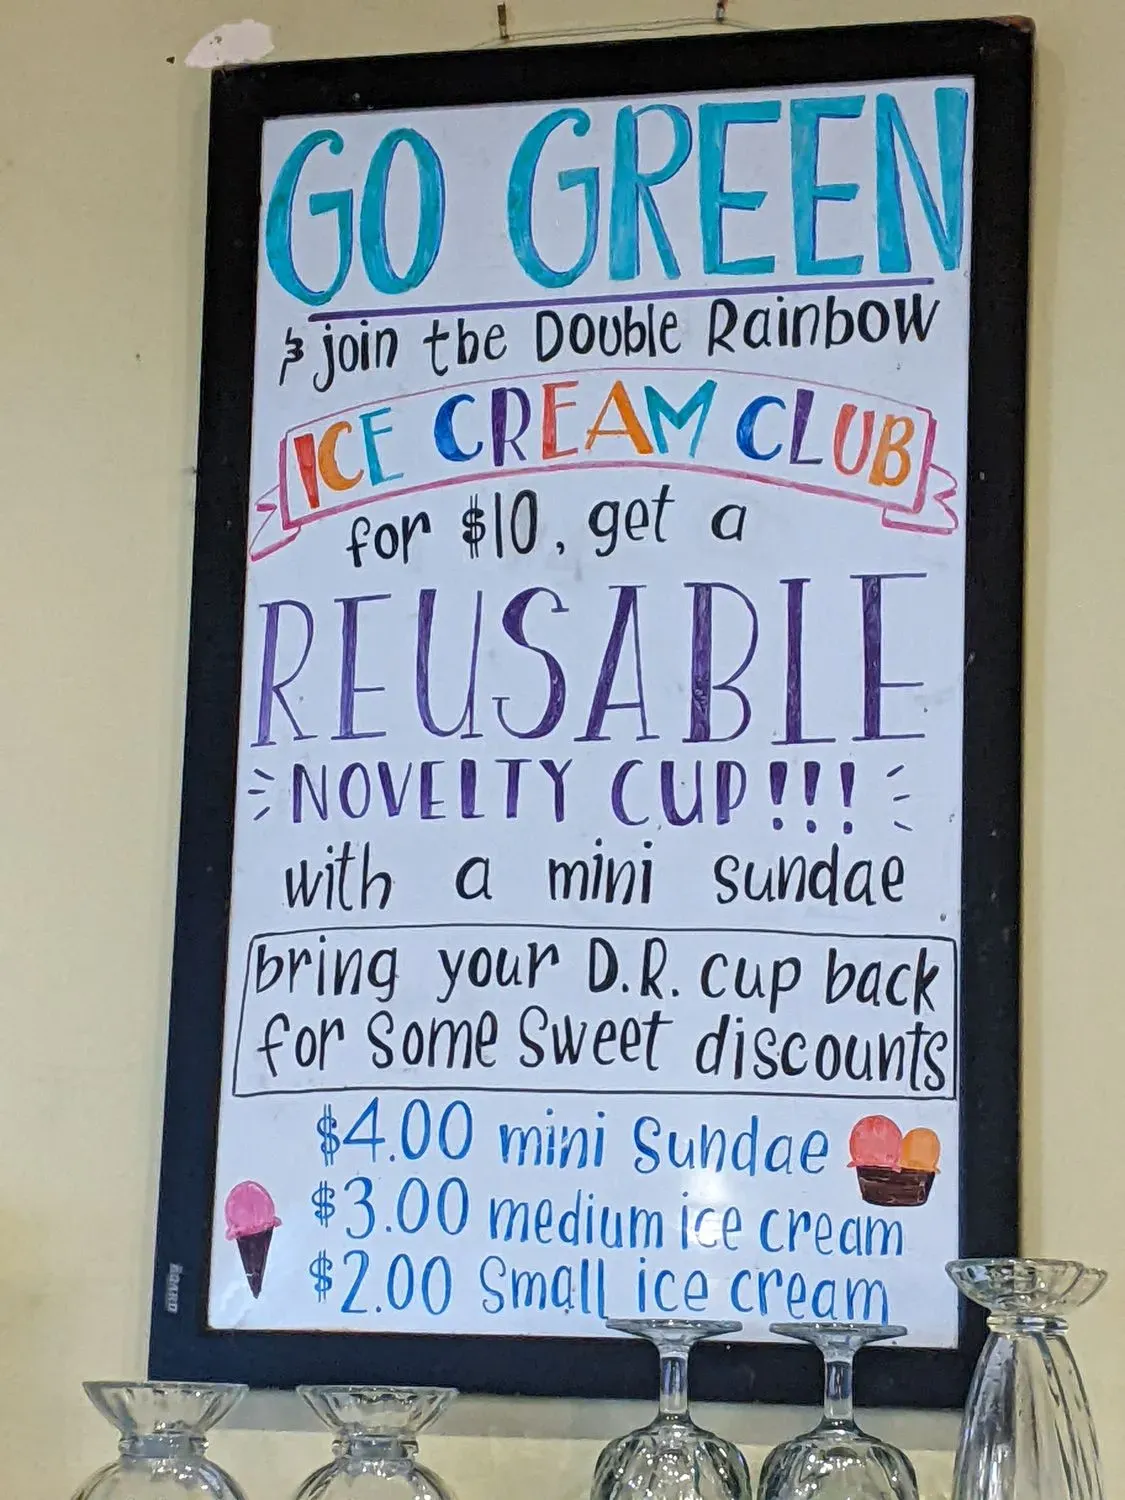 GO GREEN
& join the Double Rainbow
ICE CREAM CLUB
for $10, get a
REUSABLE
NOVELTY CUP!!!
with a mini sundae
bring your D.R. cup back
for some sweet discounts
$4.00 mini Sundae
$3.00 medium ice cream
$2.00 Small ice cream
BOARD